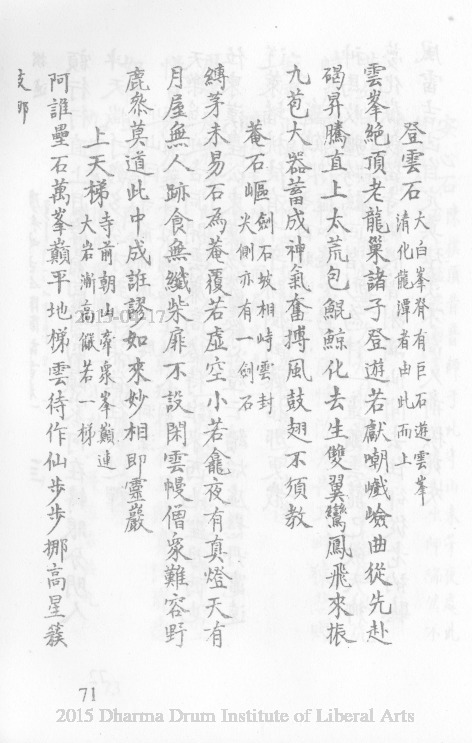 登雲石 大白峯脊有巨石遊雲峯清化龍潭者由此而上
雲峯絕頂老龍巢諸子登遊若獻嘲巇嶮曲從先赴
碣昇騰直上太荒包鯤鯨化去生雙翼鸞鳳飛來振
九苞大器蓄成神氣奮搏風鼓翅不須教
菴石嶇 劍石坡相峙雲封尖側亦有一劍石
縛茅未易石為菴覆若虛空小若龕夜有真燈天有
月屋無人跡食無纖柴扉不設閑雲幔僧衆難容野
鹿叅莫道此中成誑謬如來妙相即靈巖
上天梯 寺前朝山牽衆峯巔連大岩漸高儼若一梯
阿誰壘石萬峯巔平地梯雲待作仙步步挪高星簇
支那
2015-04-17
71
2015 Dharma Drum Institute of Liberal Arts